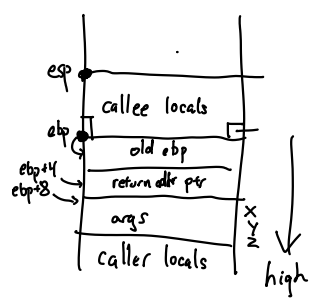 esp
callee locals
ebp
old ebp
ebp+4
return addr ptr
ebp+8
args
X
Y
Z
caller locals
high